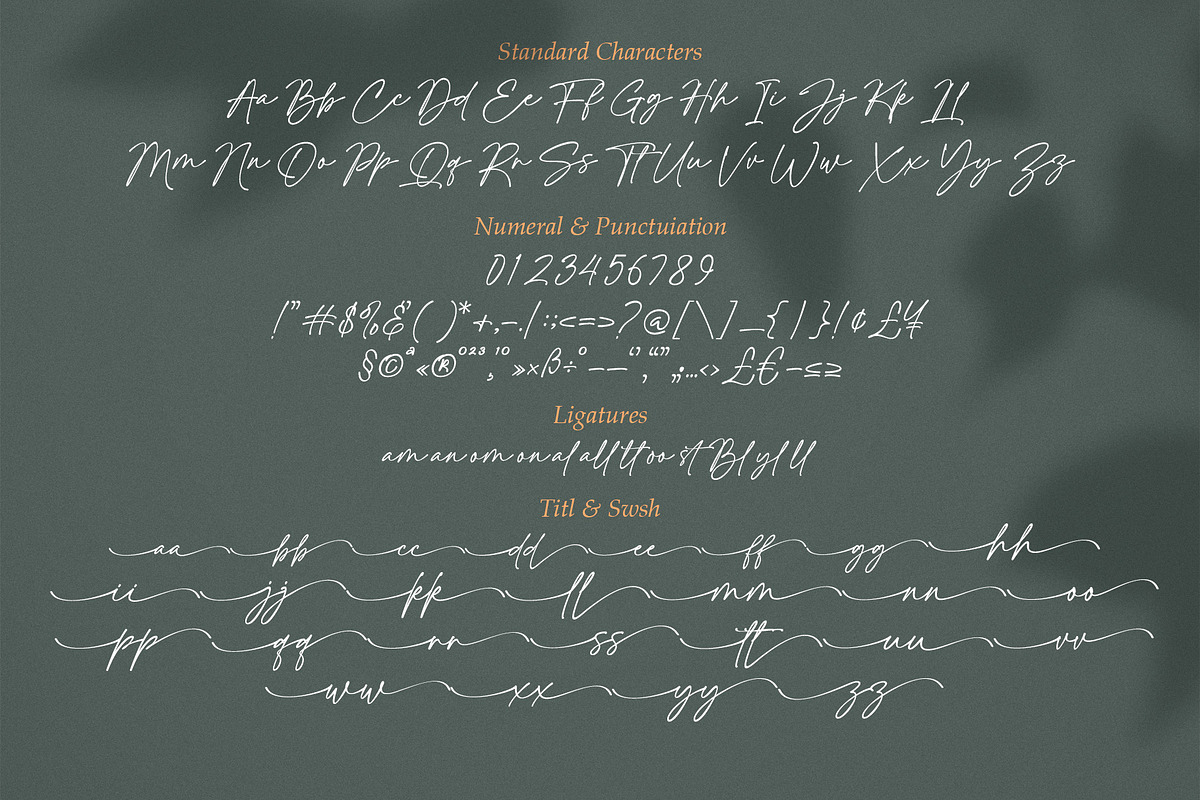 Standard Characters
Aa Bb Cc Dd Ee Ff Gg Hh Ii Jj Kk Ll
Mm Nn Oo Pp Qq Rr Ss Tt Uu Vv Ww Xx Yy Zz
Numeral & Punctuiation
0123456789
!"#$%&'()*+,-./:;<=>?@[\]_{|}!¢£¥
§©ª«®°²³¸¹º»×ß÷°–—‘’‚“”„•…‹›₤€−≤≥
Ligatures
am an om on al all tt oo st Bl yl ll
Titl & Swsh
aa bb cc dd ee ff gg hh
ii jj kk ll mm nn oo
pp qq rr ss tt uu vv
ww xx yy zz